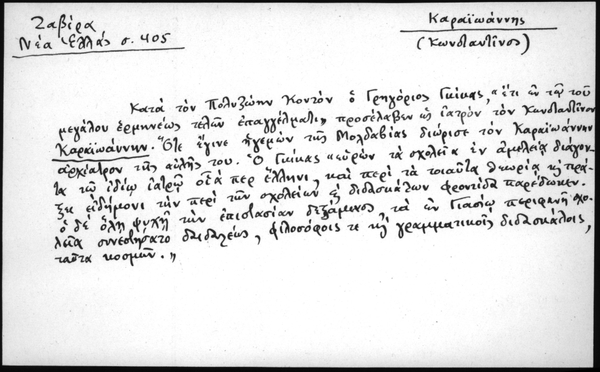 Ζαβίρα
Νέα Ἑλλάς σ. 405
Καραϊωάννης
(Κωνσταντῖνος)
Κατὰ τὸν Πολυζώην Κοντὸν ὁ Γρηγόριος Γκίκας, "ἔτι ἐν τῷ τοῦ
μεγάλου ἑρμηνέως τελῶν ἐπαγγέλματι, προσέλαβεν ὡς ἰατρὸν τὸν Κωνσταντῖνον
Καραϊωάννην. Ὅτε ἔγινε ἡγεμὼν τῆς Μολδαβίας διώρισε τὸν Καραϊωάννην
ἀρχίατρον τῆς αὐλῆς του. Ὁ Γκίκας "εὑρὼν τὰ σχολεῖα ἐν ἀμελείᾳ διάγοντα
τῷ ἰδίῳ ἰατρῷ οἷά περ ἕλληνι, καὶ περὶ τὰ τοιαῦτα θεωρίᾳ κ̀ πρά-
ξει εἰδήμονι τὴν περὶ τῶν σχολείων κ̀ διδασκάλων φροντίδα παρέδωκεν.
ὁ δὲ ὅλῃ ψυχῇ τὴν ἐπιστασίαν δεξάμενος, τὰ ἐν Γιασίῳ περιφανῆ σχο-
λεῖα συνεστήσατο δαιδαλέως, φιλοσόφοις τε κ̀ γραμματικοῖς διδασκάλοις,
ταῦτα κοσμῶν."